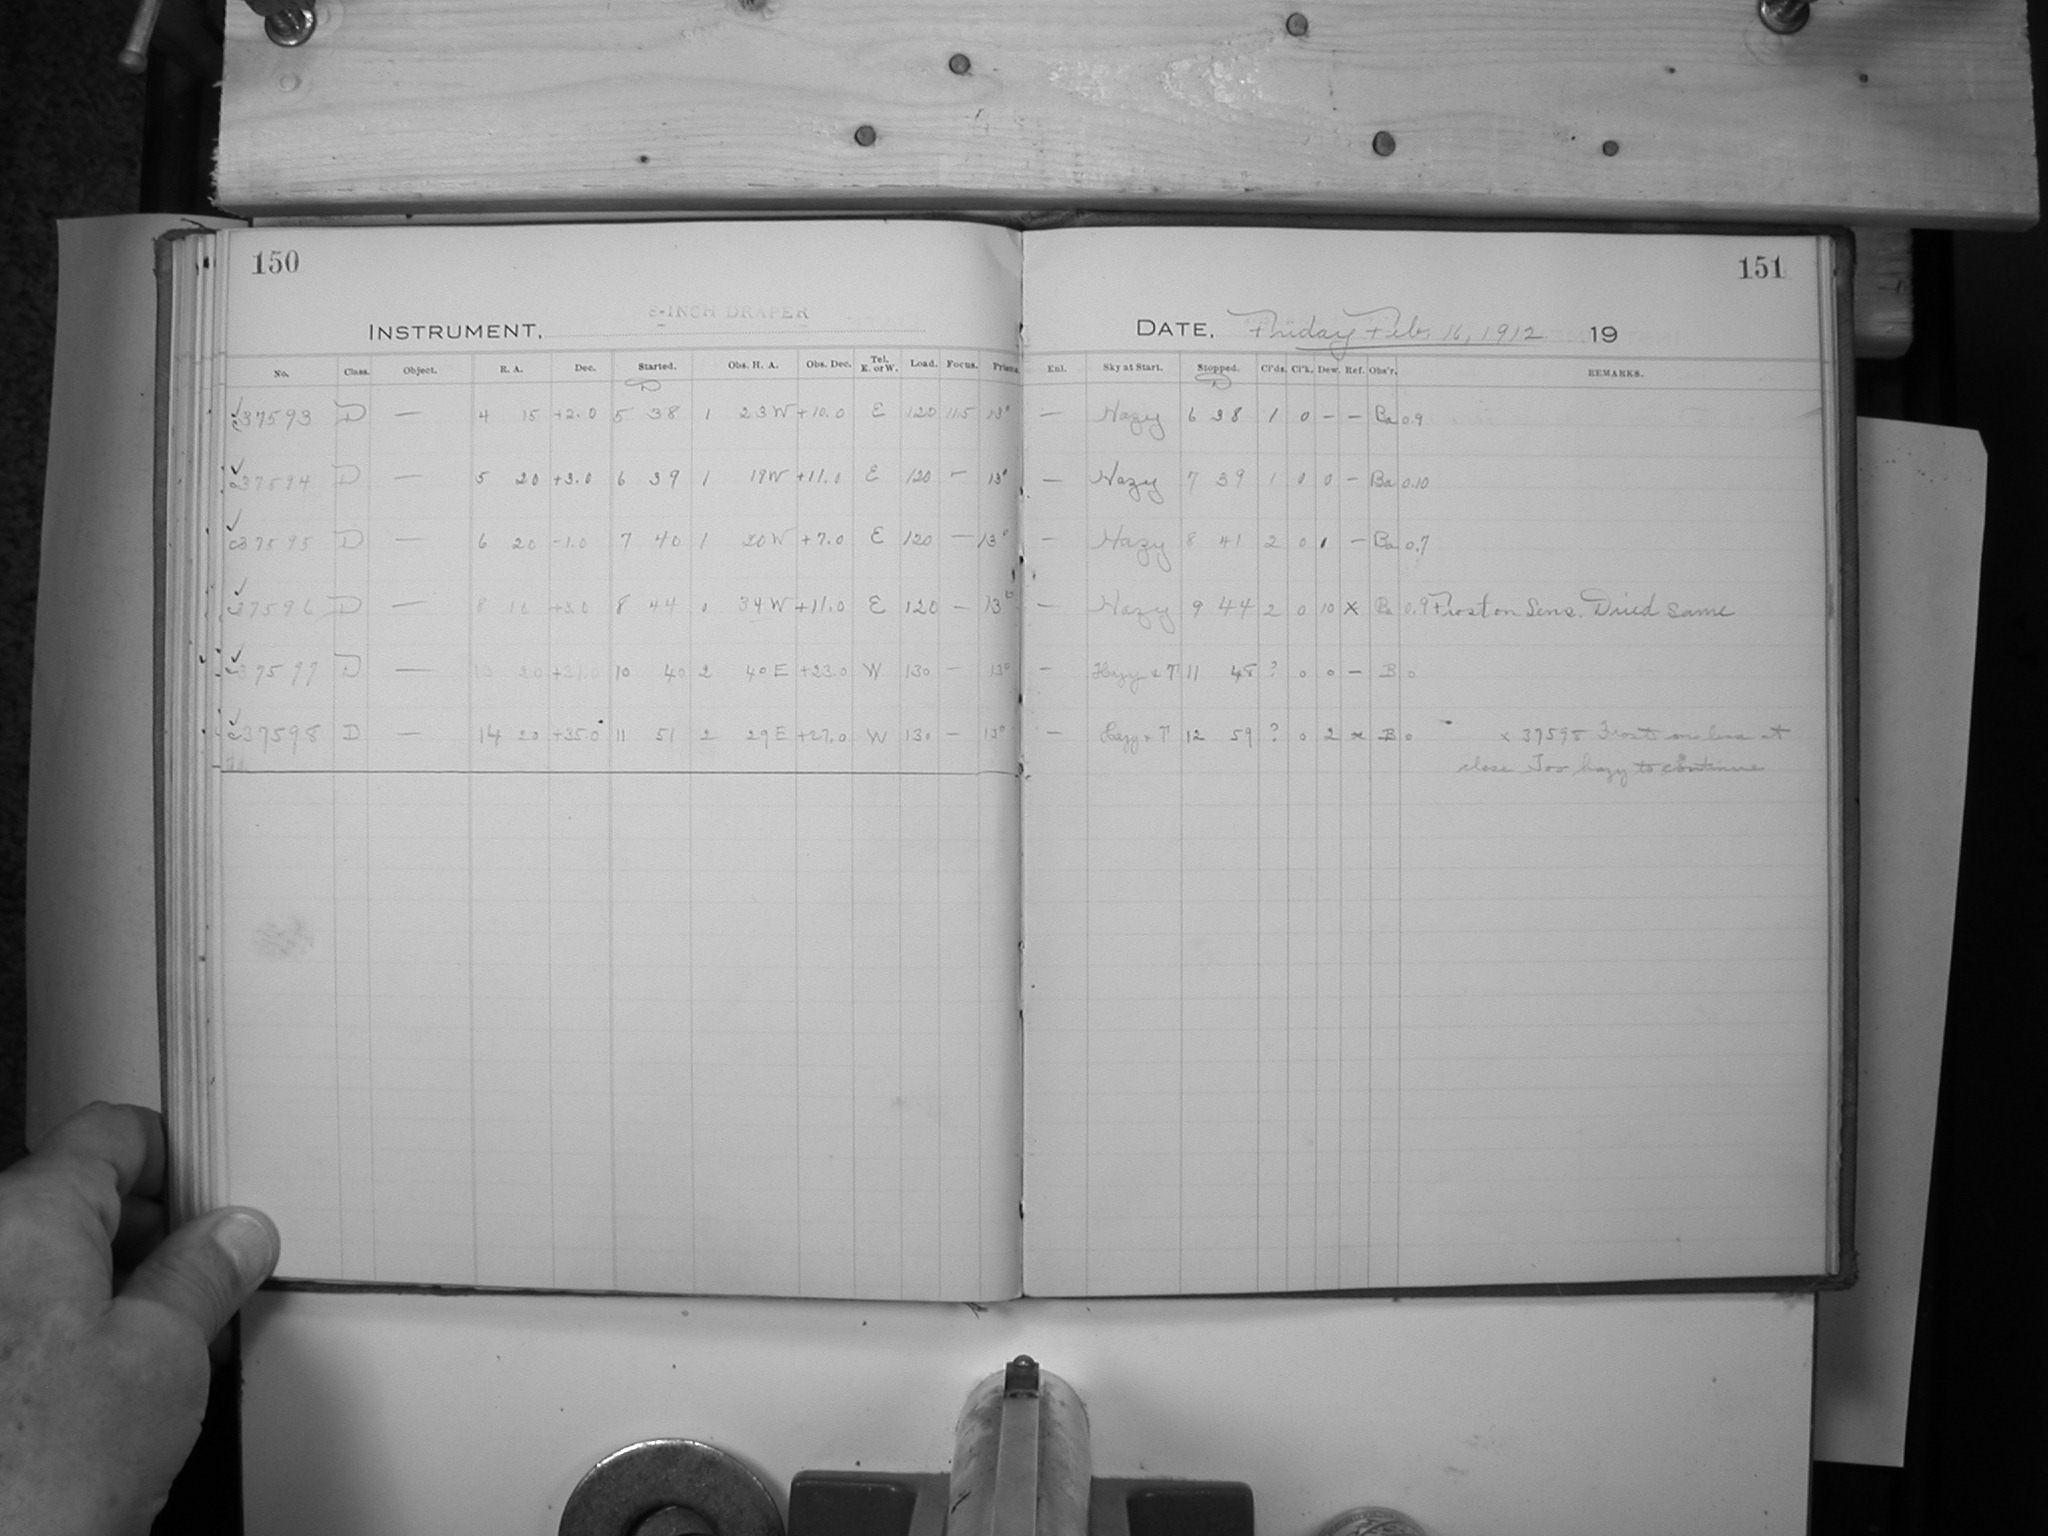 150
INSTRUMENT, 8-INCH DRAPER
No. Class. Object. R. A. Dec. Started. Obs. H. A. Obs. Dec. Tel. E. or W. Load. Focus. Prism.
D
37593 D — 4 15 +2.0 5 38 1 23 W +10.0 E 120 11.5 13°
37594 D — 5 20 +3.0 6 39 1 19 W +11.0 E 120 — 13°
37595 D — 6 20 -1.0 7 40 1 20 W +7.0 E 120 — 13°
37596 D — 8 10 +3.0 8 44 0 34 W +11.0 E 120 — 13°
37597 D — 13 20 +31.0 10 40 2 40 E +23.0 W 130 — 13°
37598 D — 14 20 +35.0 11 51 2 29 E +27.0 W 130 — 13°
151
DATE, Friday Feb. 16, 1912 19
Enl. Sky at Start. Stopped. Cl'ds. Cl'k. Dew. Ref. Obs'r. REMARKS.
D
— Hazy 6 38 1 0 — — Ba 0.9
— Hazy 7 39 1 0 0 — Ba 0.10
— Hazy 8 41 2 0 1 — Ba 0.7
— Hazy 9 44 2 0 10 x Ba 0.9 Frost on Lens. Dried same
— Hazy & T 11 48 ? 0 0 — B 0
— Hazy & T 12 59 ? 0 2 x B 0 x 37598 Frost on lens at
close Too hazy to continue